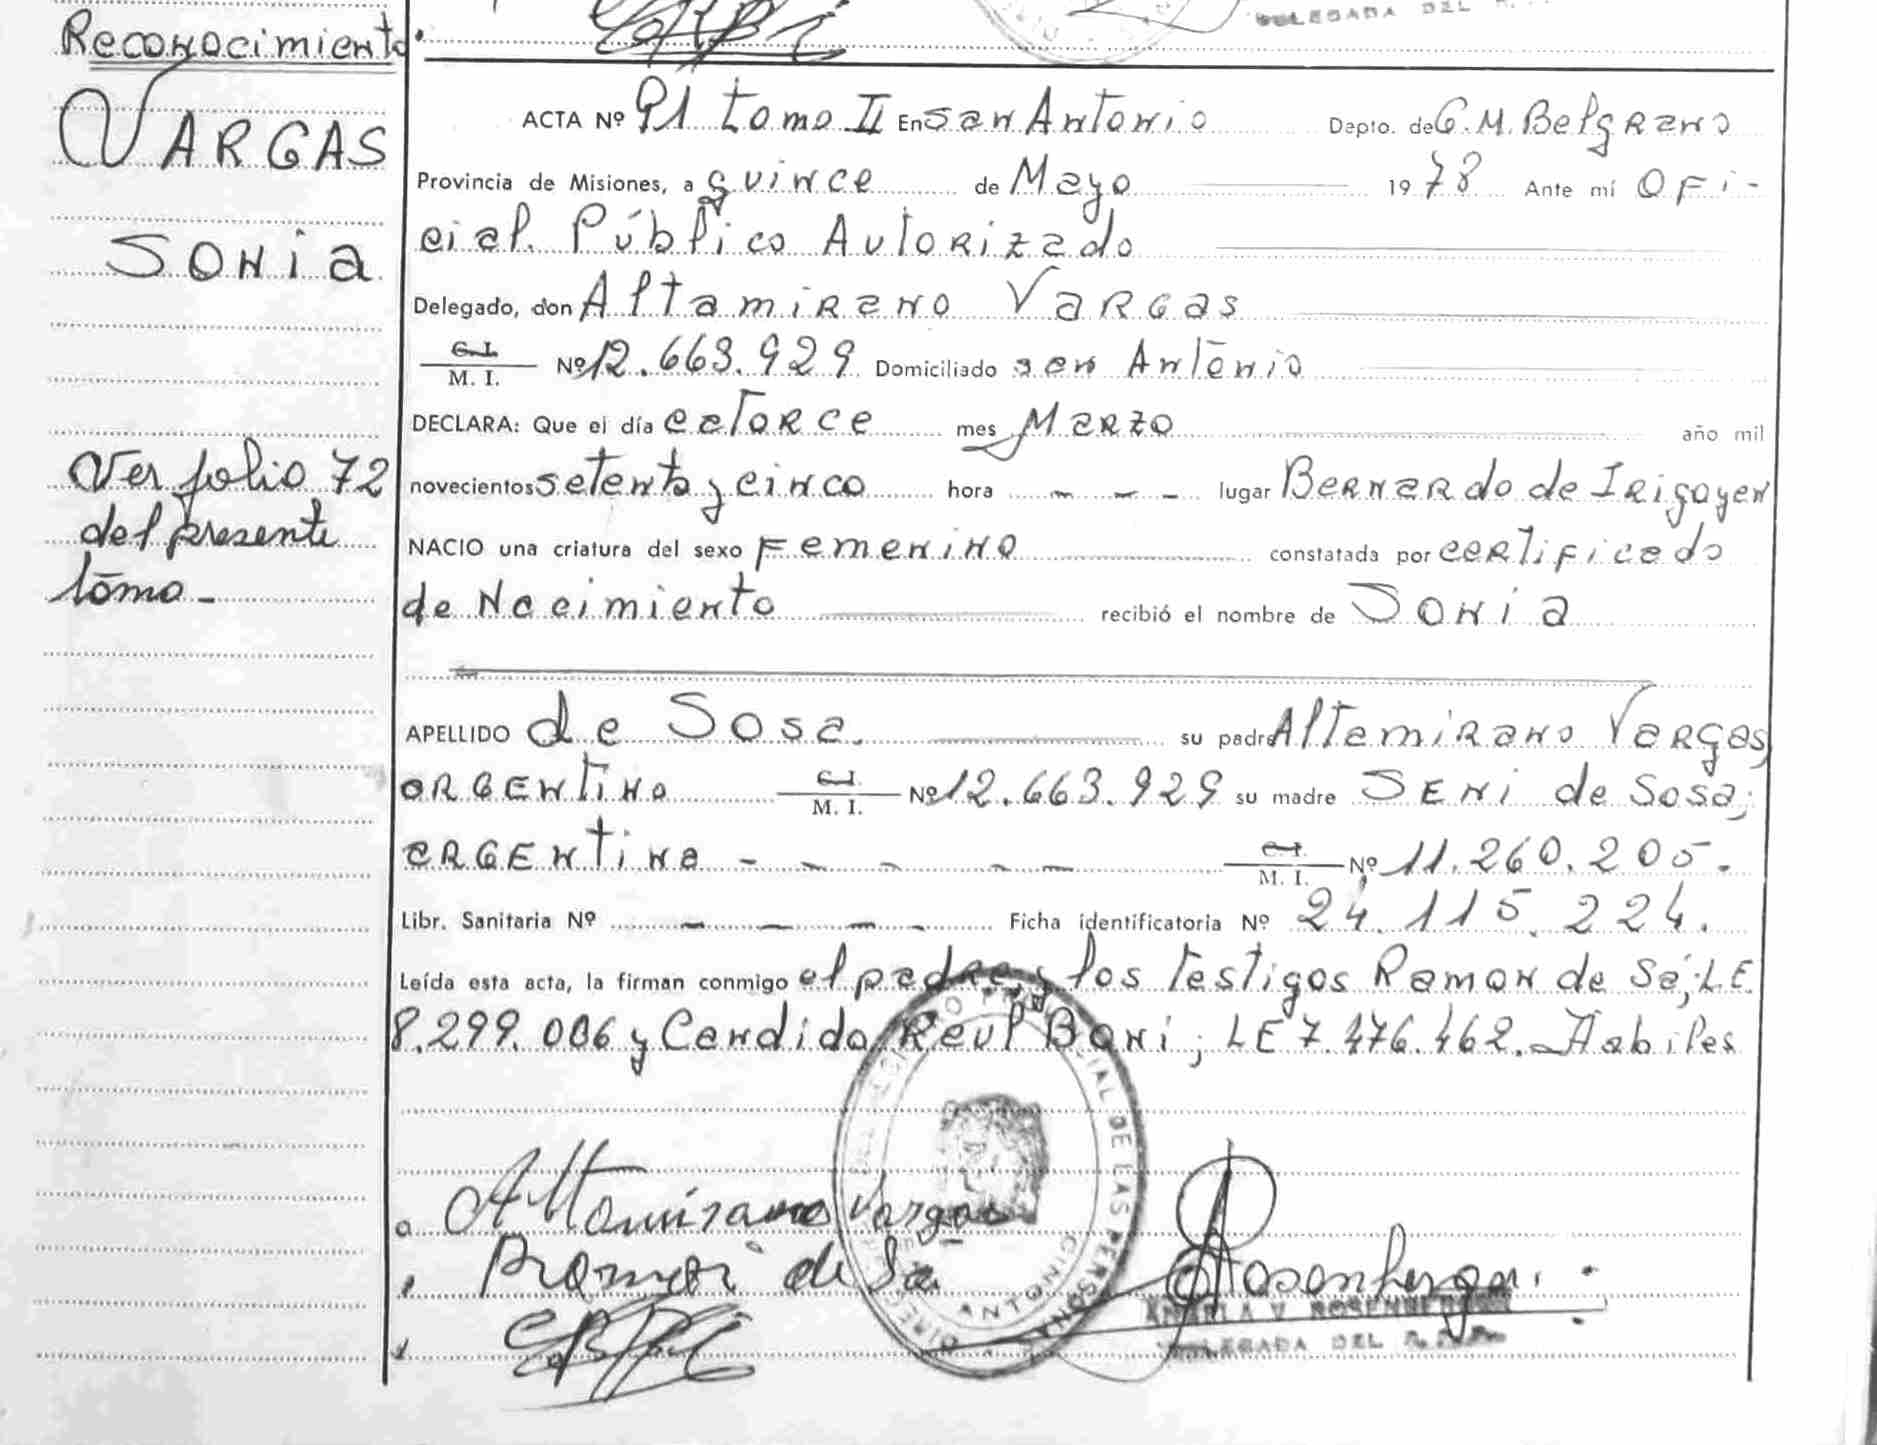 Reconocimiento.
VARGAS
SONIA
Ver folio 72
del presente
tomo -
DELEGADA DEL
ACTA Nº 91 tomo II En San Antonio Depto. de G. M. Belgrano
Provincia de Misiones, a quince de Mayo 1978 Ante mí Ofi-
cial Público Autorizado
Delegado, don Altamirano Vargas
C. I. / M. I. Nº 12.663.929 Domiciliado San Antonio
DECLARA: Que el día catorce mes Marzo año mil
novecientos setenta y cinco hora - - - lugar Bernardo de Irigoyen
NACIO una criatura del sexo Femenino constatada por certificado
de Nacimiento recibió el nombre de Sonia
APELLIDO de Sosa. su padre Altamirano Vargas
argentino C. I. / M. I. Nº 12.663.929 su madre Seni de Sosa;
argentina - - - - - C. I. / M. I. Nº 11.260.205.
Libr. Sanitaria Nº - - - - Ficha identificatoria Nº 24.115.224.
Leída esta acta, la firman conmigo el padre y los testigos Ramon de Sá; LE
8.299.006 y Candido Reul Boni; LE 7.476.462. Habiles
a Altamirano Vargas
Ramon de Sa
Rosenberg
DELEGADA DEL